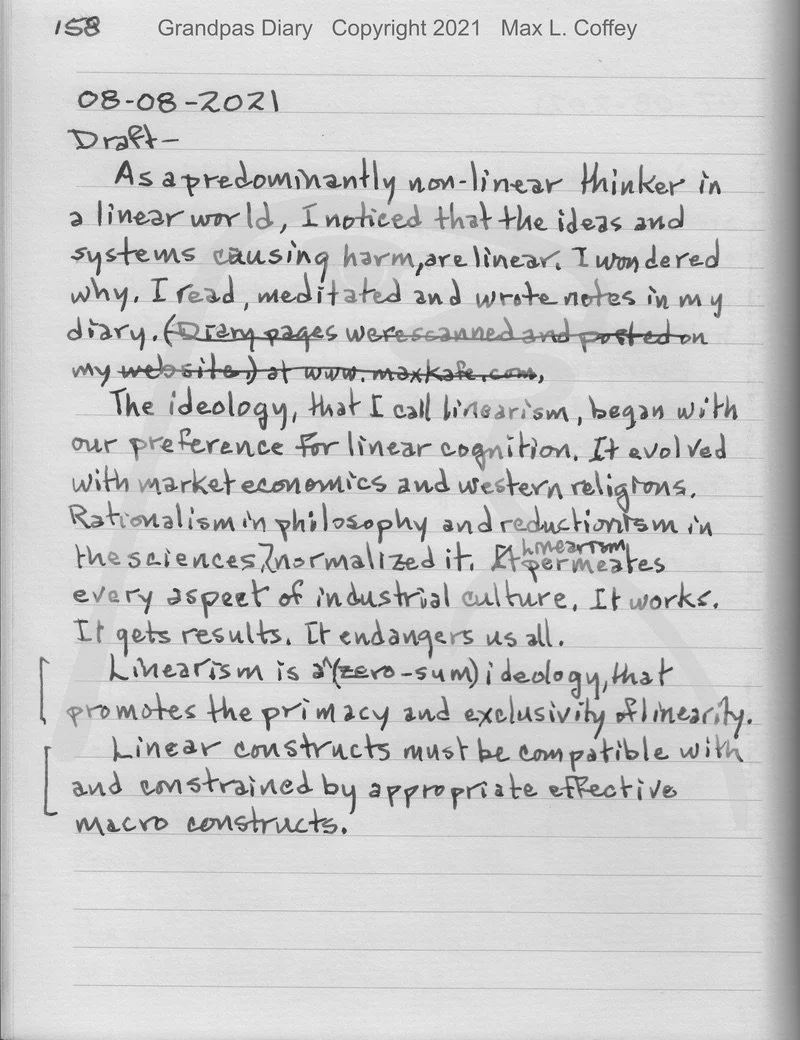 158 Grandpas Diary Copyright 2021 Max L. Coffey
08-08-2021
Draft-
As a predominantly non-linear thinker in
a linear world, I noticed that the ideas and
systems causing harm, are linear. I wondered
why. I read, meditated and wrote notes in my
diary. (Diary pages were scanned and posted on
my website.) at www.maxkafe.com,
The ideology, that I call linearism, began with
our preference for linear cognition. It evolved
with market economics and western religions.
Rationalism in philosophy and reductionism in
the sciences, normalized it. It linearism permeates
every aspect of industrial culture. It works.
It gets results. It endangers us all.
Linearism is a (zero-sum) ideology, that
promotes the primacy and exclusivity of linearity.
Linear constructs must be compatible with
and constrained by appropriate effective
macro constructs.